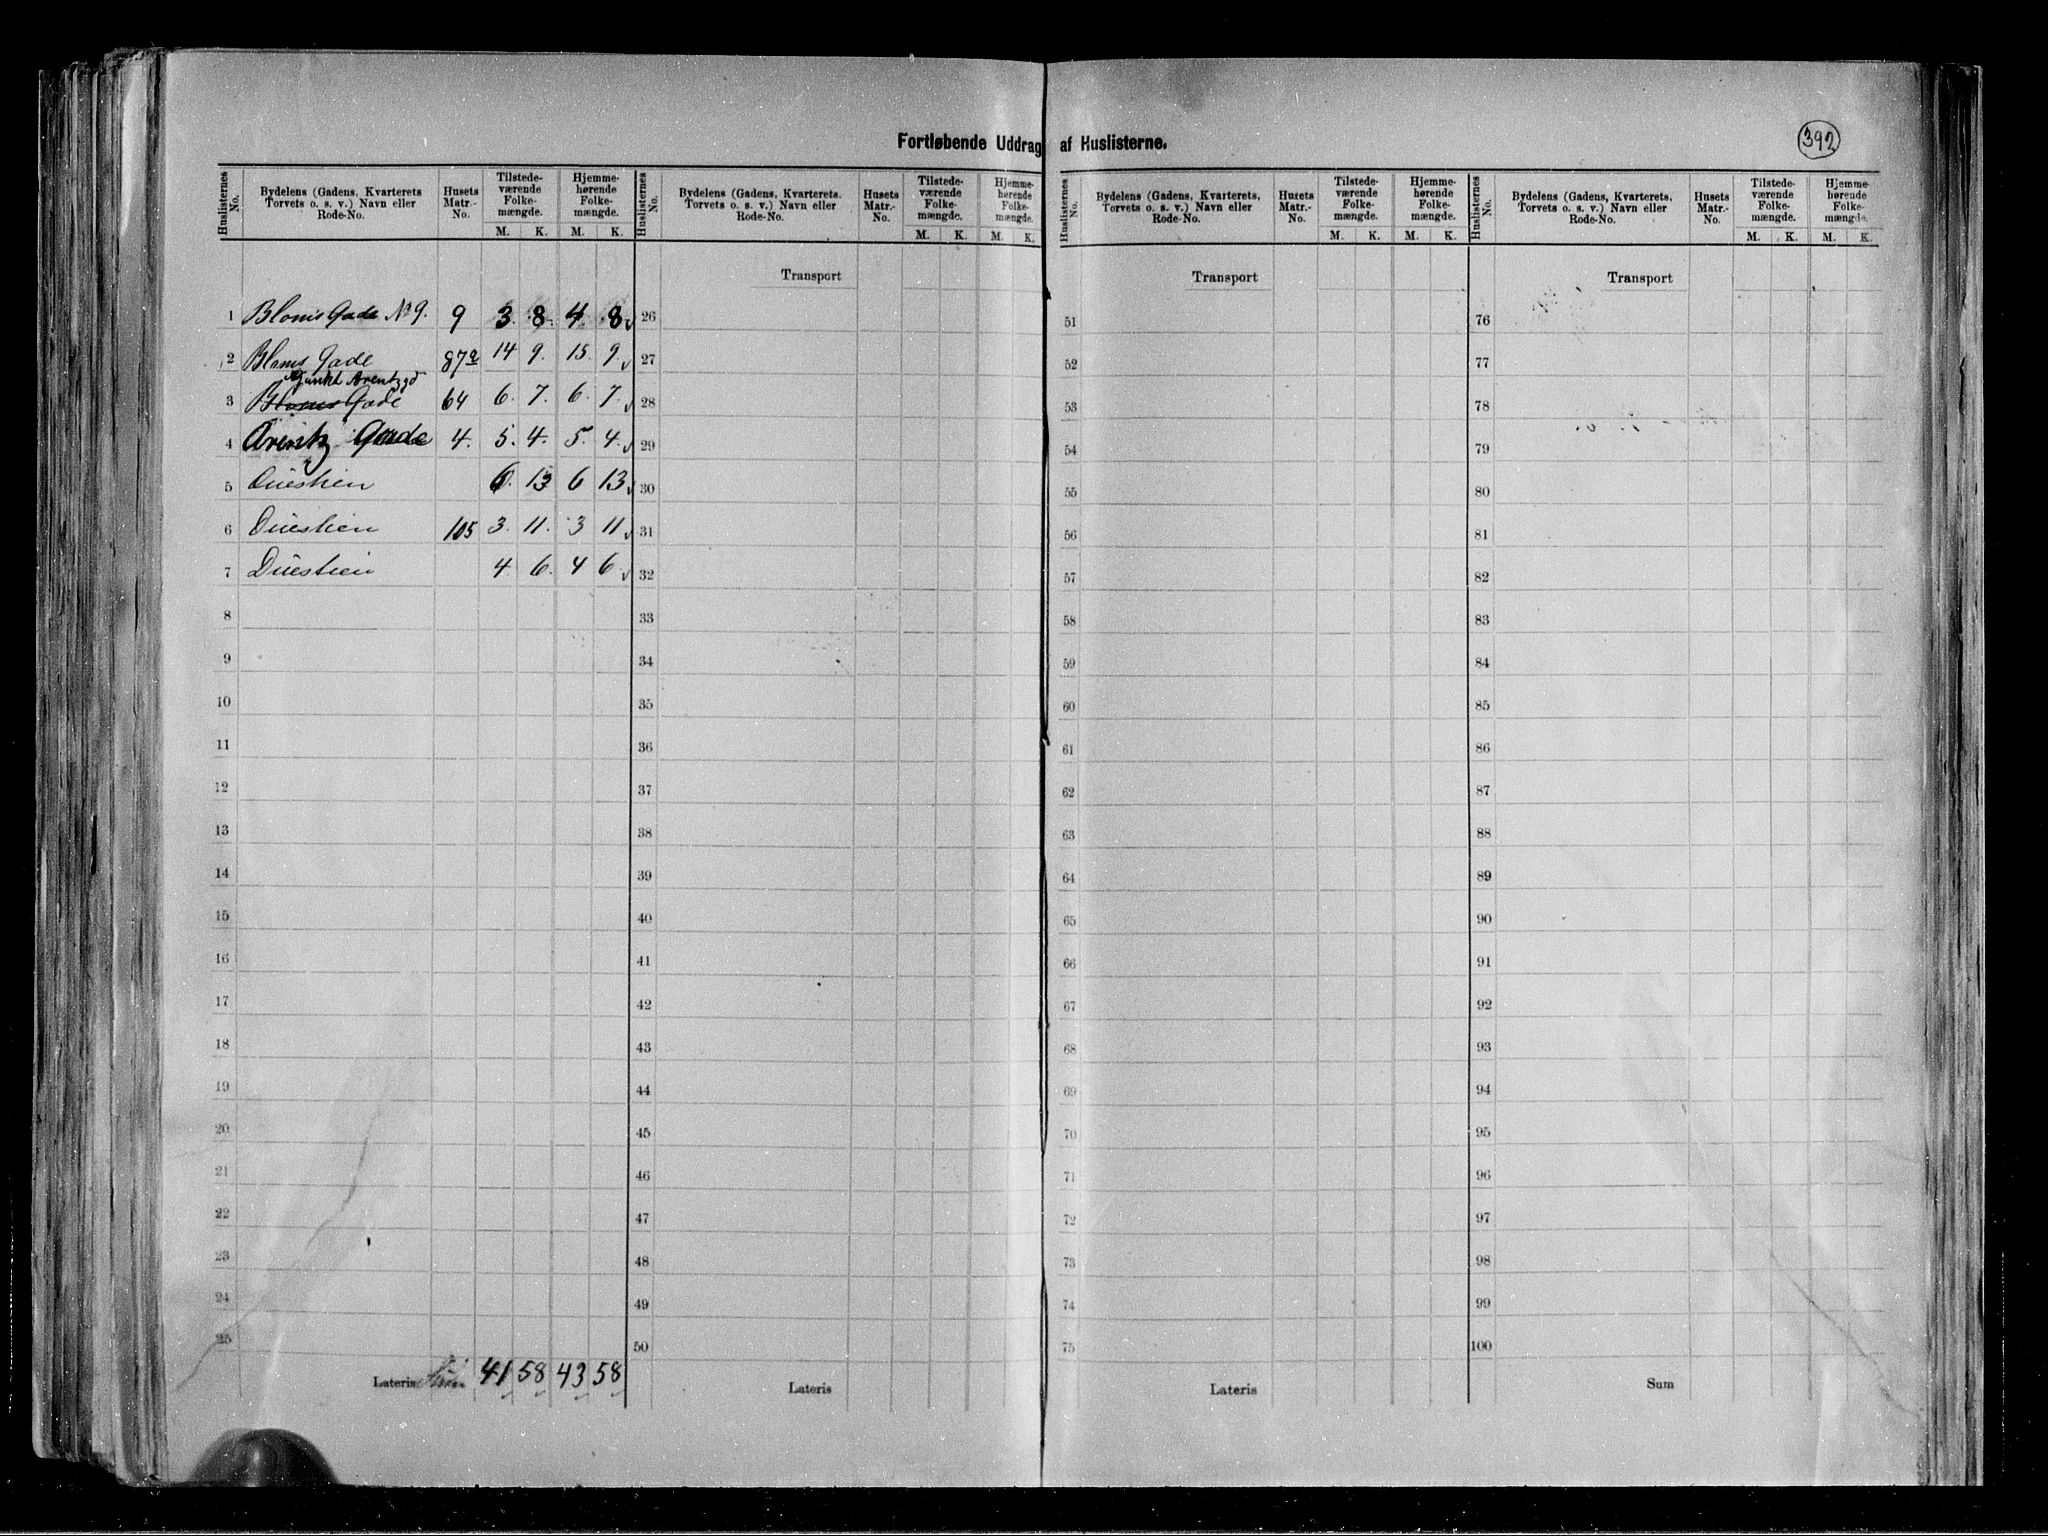 Fortløbende Uddrag af Huslisterne.
392
Huslisternes No. | Bydelens (Gadens, Kvarterets Torvets o. s. v.) Navn eller Rode-No. | Husets Matr.-No. | Tilstedeværende Folkemængde. M. K. | Hjemmehørende Folkemængde. M. K.
Huslisternes No. | Bydelens (Gadens, Kvarterets, Torvets o. s. v.) Navn eller Rode-No. | Husets Matr.-No. | Tilstedeværende Folkemængde. M. K. | Hjemmehørende Folkemængde. M. K.
Huslisternes No. | Bydelens (Gadens, Kvarterets, Torvets o. s. v.) Navn eller Rode-No. | Husets Matr.-No. | Tilstedeværende Folkemængde. M. K. | Hjemmehørende Folkemængde. M. K.
Huslisternes No. | Bydelens (Gadens, Kvarterets, Torvets o. s. v.) Navn eller Rode-No. | Husets Matr.-No. | Tilstedeværende Folkemængde. M. K. | Hjemmehørende Folkemængde. M. K.
Transport Transport Transport
1 Bloms Gade No 9. 9 3. 8. 4 8 26 51 76
2 Bloms Gade 87a 14 9. 15. 9. 27 52 77
Arentz gd
3 Bloms Gade 64 6. 7. 6. 7. 28 53 78
4 Arentz Gade 4. 5. 4. 5. 4. 29 54 79
5 Duestien 6. 13 6 13 30 55 80
6 Duestien 105 3. 11. 3 11 31 56 81
7 Duestien 4 6. 4 6. 32 57 82
8 33 58 83
9 34 59 84
10 35 60 85
11 36 61 86
12 37 62 87
13 38 63 88
14 39 64 89
15 40 65 90
16 41 66 91
17 42 67 92
18 43 68 93
19 44 69 94
20 45 70 95
21 46 71 96
22 47 72 97
23 48 73 98
24 49 74 99
25 50 75 100
Lateris 41 58 43 58 Lateris Lateris Sum